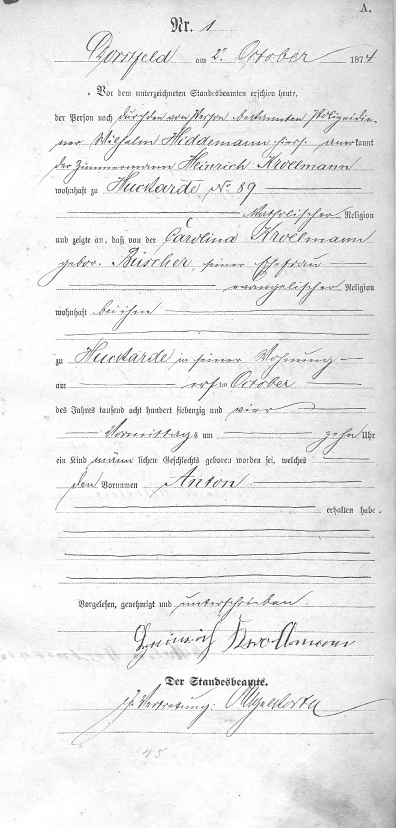 A.
Nr. 1
Dorstfeld am 2n October 1874
Vor dem unterzeichneten Standesbeamten erschien heute,
der Person nach durch den von Person bekannten Polizeidie-
ner Wilhelm Hiddemann hier anerkannt
der Zimmermann Heinrich Kroellmann
wohnhaft zu Huckarde No 89
katholischer Religion
und zeigte an, daß von der Carolina Kroellmann
gebor. Büscher, seiner Ehefrau
evangelischer Religion
wohnhaft bei ihm
zu Huckarde in seiner Wohnung
am ersten October
des Jahres tausend acht hundert siebenzig und vier
Vormittags um zehn Uhr
ein Kind männlichen Geschlechts geboren worden sei, welches
den Vornamen Anton
erhalten habe.
Vorgelesen, genehmigt und unterschrieben.
Heinrich Kroellmann
Der Standesbeamte.
In Vertretung:
45